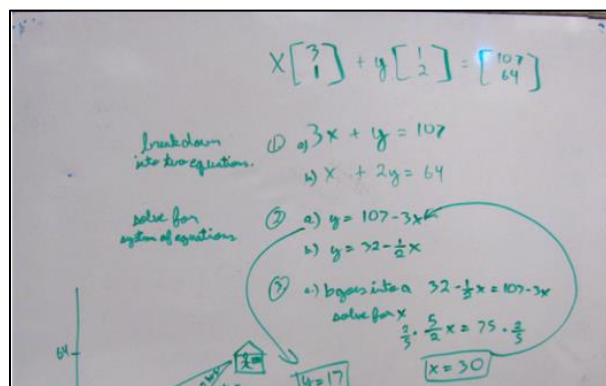 x [3 1] + y [1 2] = [107 64]
breakdown into two equations.
① a) 3x + y = 107
b) x + 2y = 64
solve for system of equations
② a) y = 107 - 3x
b) y = 32 - ½x
③ a.) b goes into a 32 - ½x = 107 - 3x
solve for x
2/5 · 5/2 x = 75 · 2/5
64
y = 17
x = 30